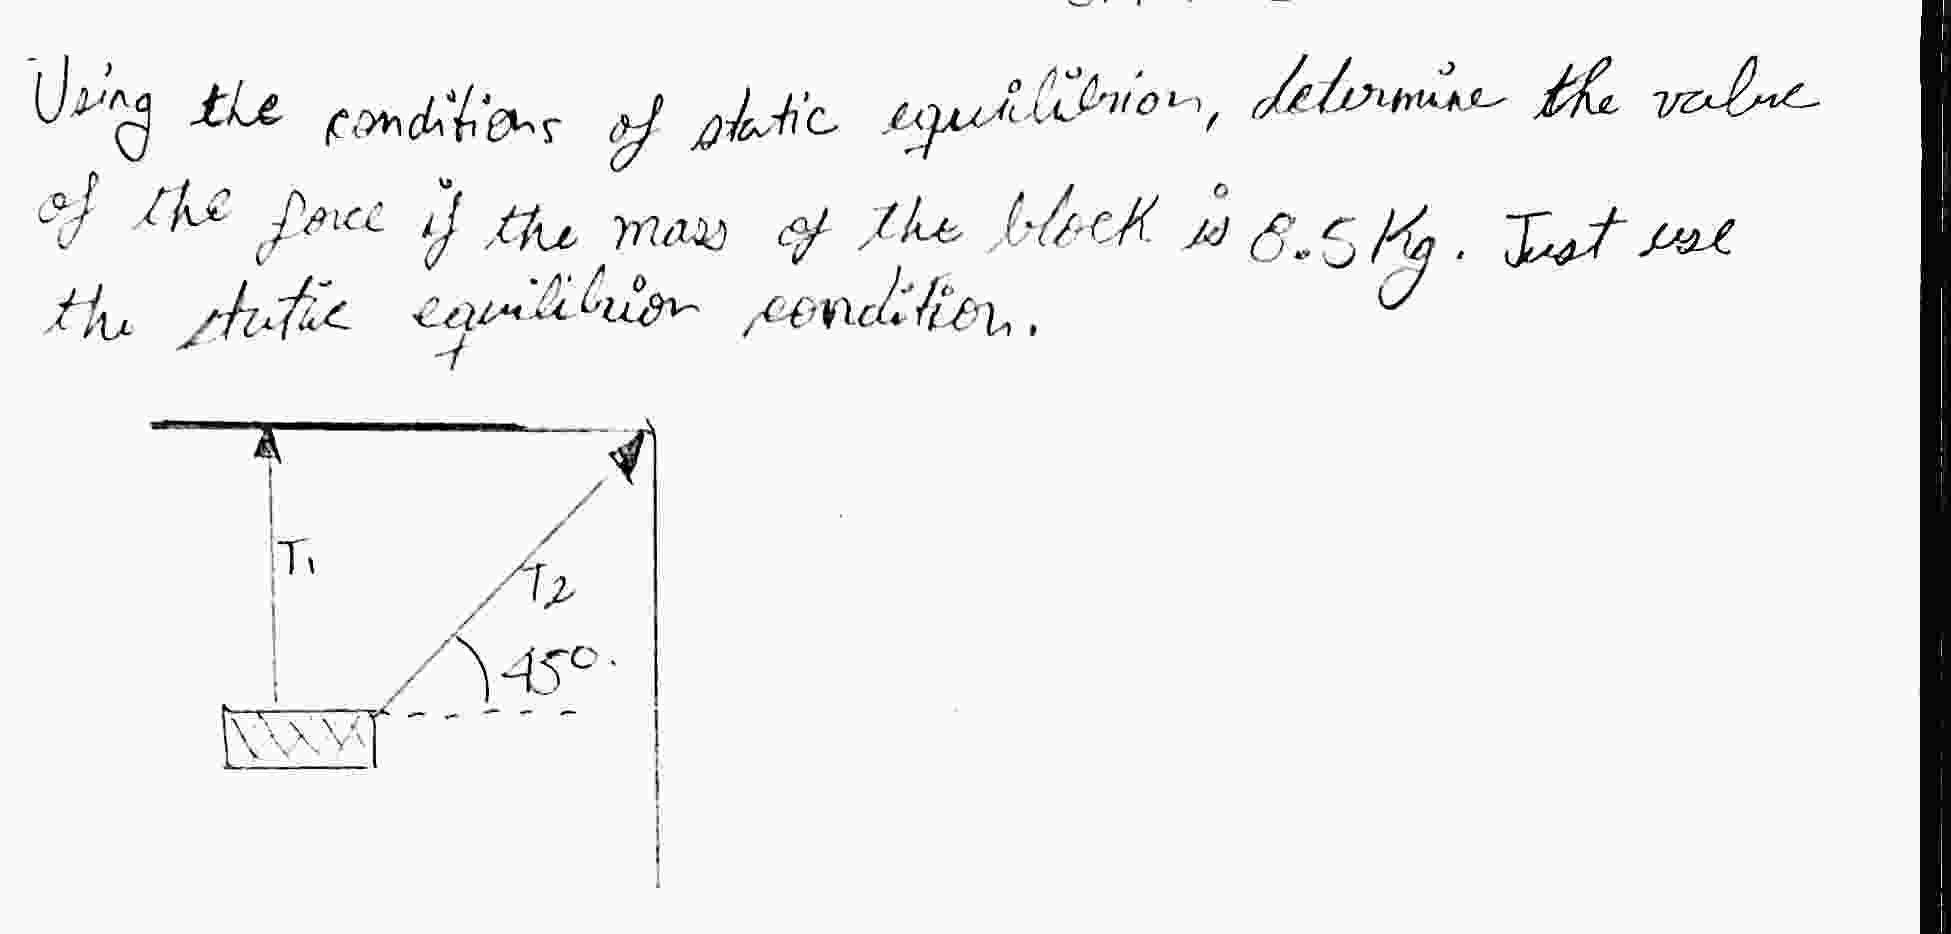 Using the conditions of static equilibrion, determine the value
of the force if the mass of the block is 8.5 Kg. Just use
the static equilibrion condition.
T1
T2
45°.